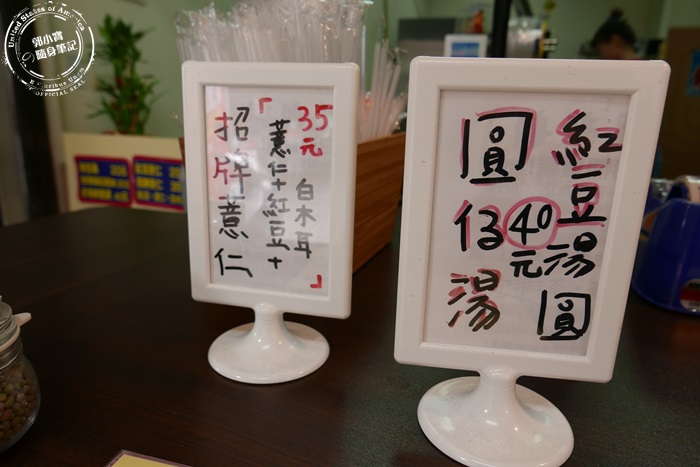 United States of America
郭小寶
隨身筆記
E Pluribus Unum
OFFICIAL SEAL
35元
「薏仁+紅豆+
白木耳」
招牌薏仁
紅豆湯圓
40元
圓仔湯